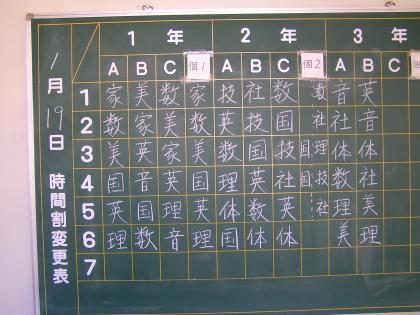 1月19日 時間割変更表
1年 2年 3年
A B C 個1 A B C 個2 A B 個
1 家 美 数 家 技 社 数 数 音 英
2 数 家 美 数 英 技 国 社 社 音
3 美 英 家 美 数 国 技 国理 体 体
4 国 音 英 国 理 英 社 国技 数 社
5 英 国 理 英 体 数 英 社 理 美
6 理 数 音 理 国 体 体 美 理
7